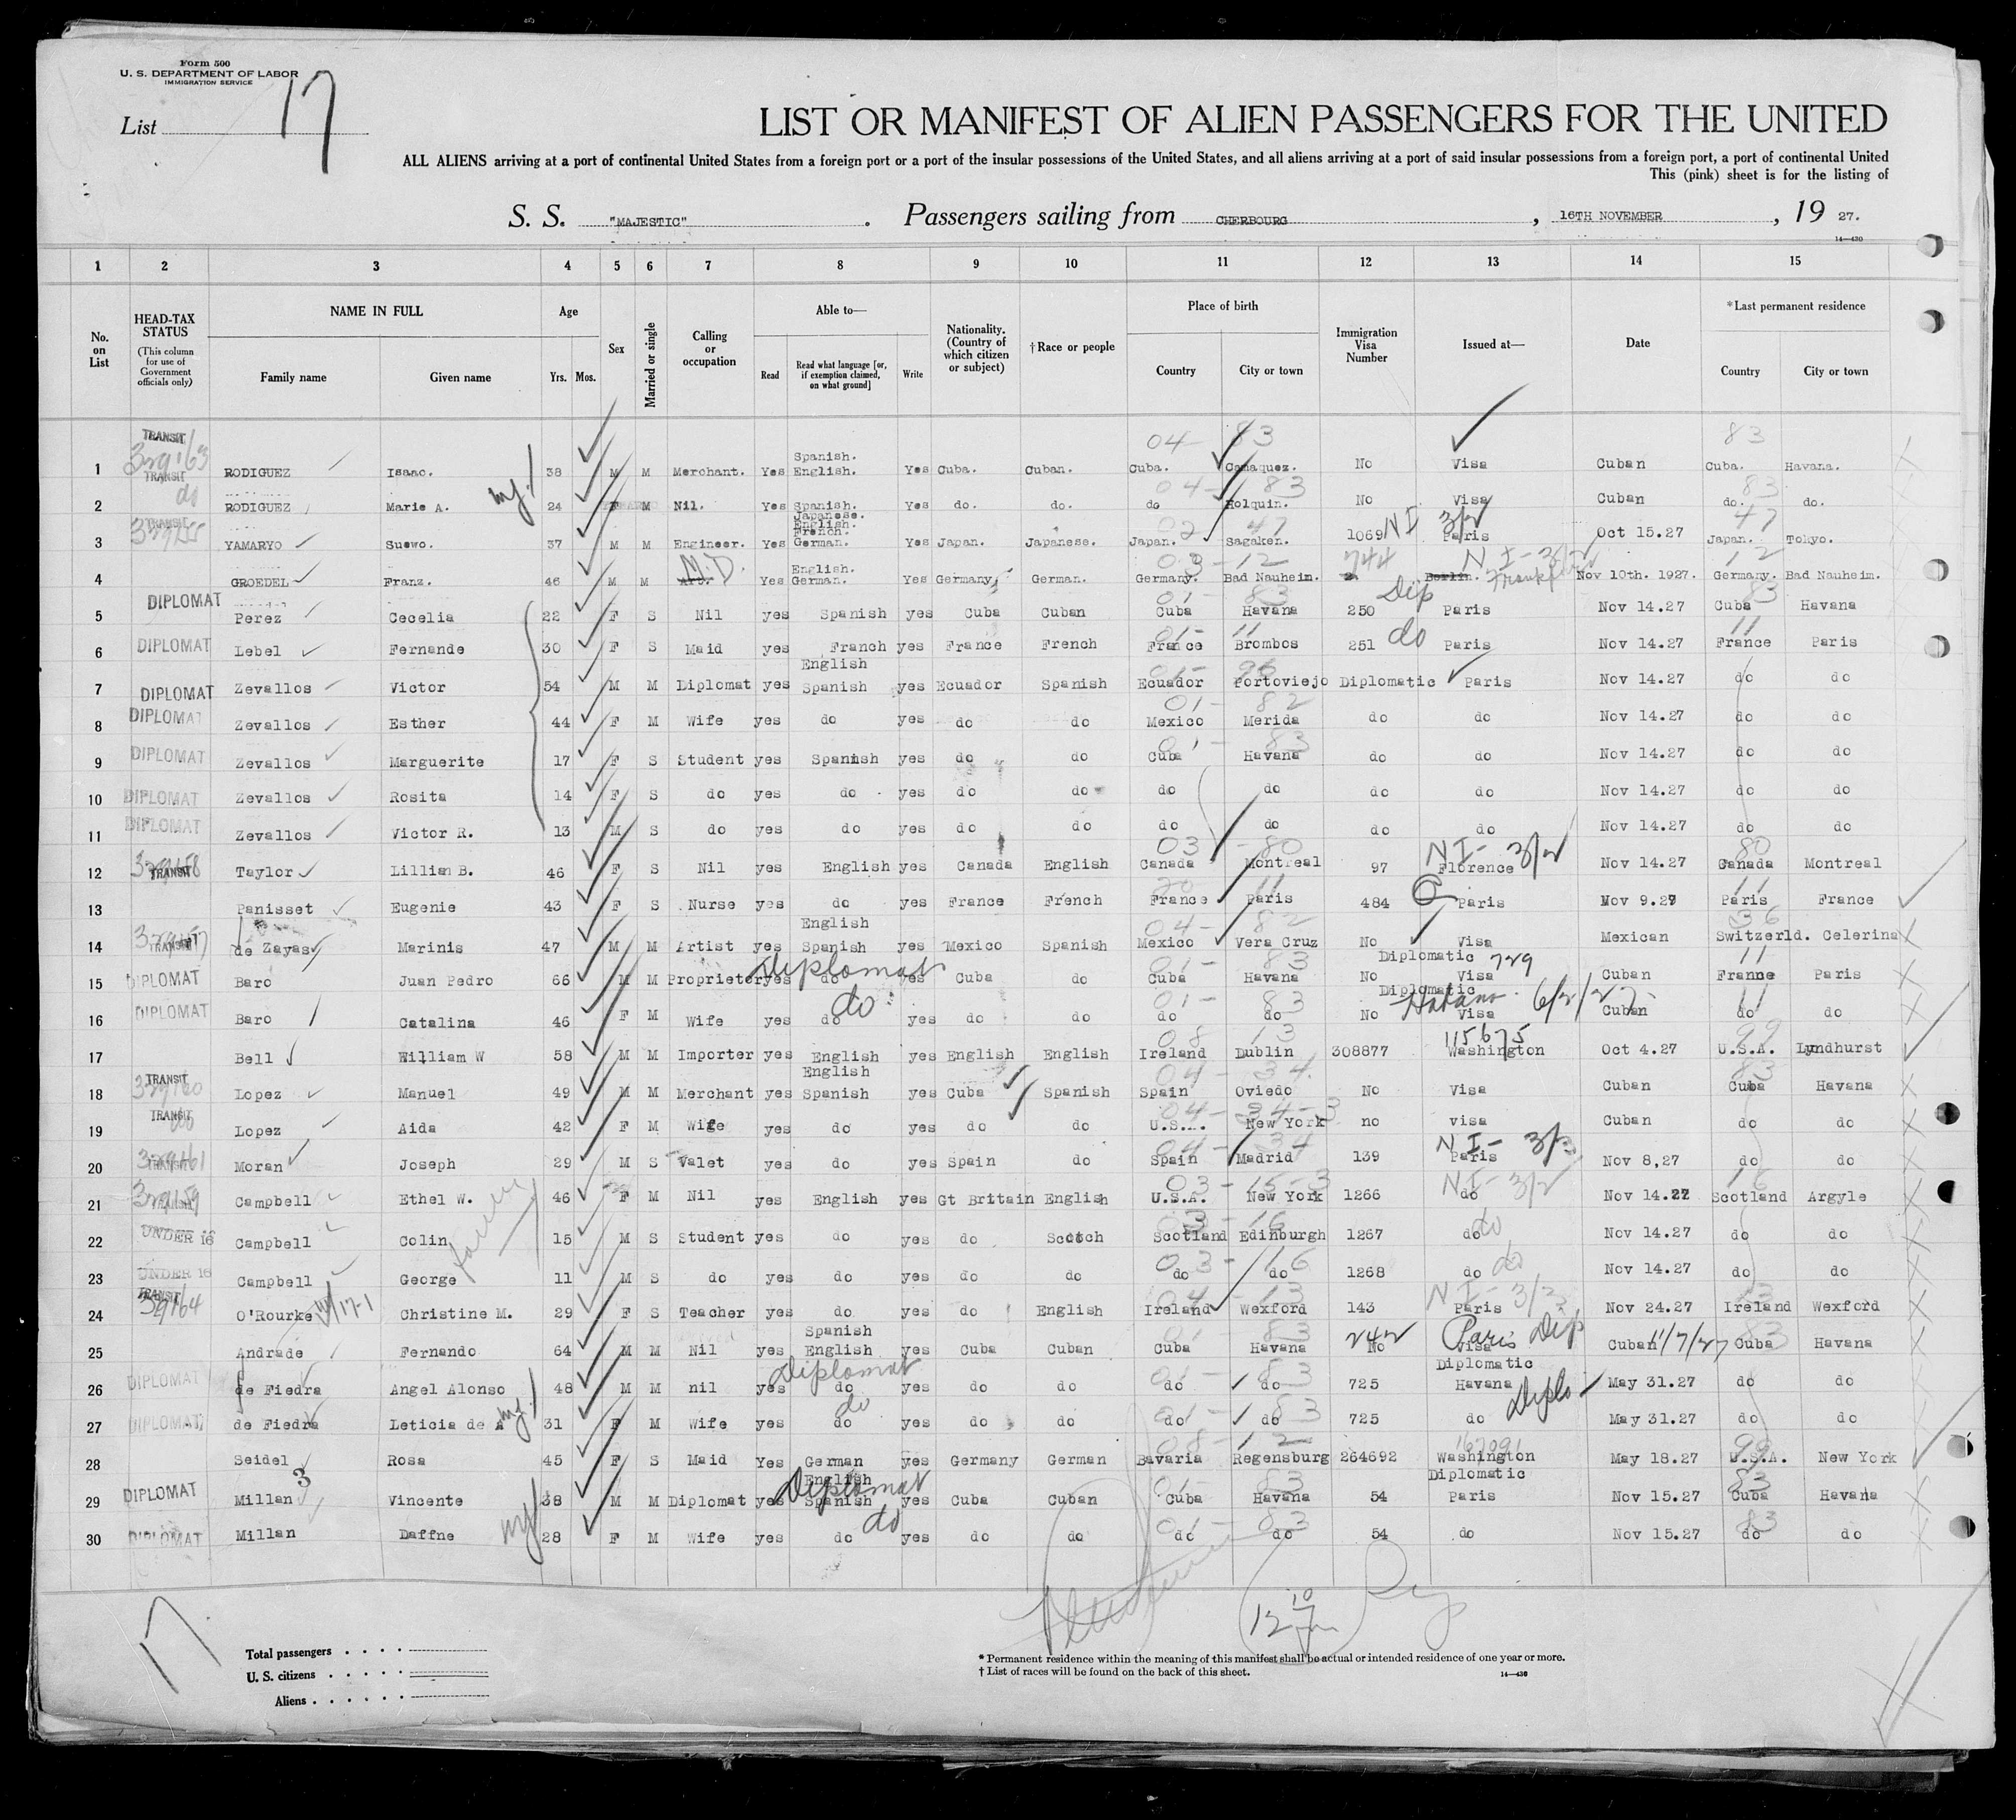 Form 500
U. S. DEPARTMENT OF LABOR
IMMIGRATION SERVICE
List 17
LIST OR MANIFEST OF ALIEN PASSENGERS FOR THE UNITED
ALL ALIENS arriving at a port of continental United States from a foreign port or a port of the insular possessions of the United States, and all aliens arriving at a port of said insular possessions from a foreign port, a port of continental United
This (pink) sheet is for the listing of
S. S. "MAJESTIC" . Passengers sailing from CHERBOURG , 16TH NOVEMBER , 19 27.
14—430
1 2 3 4 5 6 7 8 9 10 11 12 13 14 15
No. on List
HEAD-TAX STATUS (This column for use of Government officials only)
NAME IN FULL Family name Given name
Age Yrs. Mos.
Sex
Married or single
Calling or occupation
Able to— Read Read what language [or, if exemption claimed, on what ground] Write
Nationality. (Country of which citizen or subject)
†Race or people
Place of birth Country City or town
Immigration Visa Number
Issued at—
Date
*Last permanent residence Country City or town
1 TRANSIT 329163 TRANSIT RODIGUEZ Isaac. 38 M M Merchant. Yes Spanish. English. Yes Cuba. Cuban. 04-83 Cuba. Camaquez. No Visa Cuban 83 Cuba. Havana.
2 do RODIGUEZ Marie A. 24 F M Nil. Yes Spanish. Yes do. do. 04-183 do Holquin. No Visa Cuban 83 do. do.
3 TRANSIT YAMARYO Suewo. 37 M M Engineer. Yes Japanese. English. French. German. Yes Japan. Japanese. 02 47 Japan. Sagaken. 1069 NI 3/2 Paris Oct 15.27 47 Japan. Tokyo.
4 GROEDEL Franz. 46 M M M.D. Yes English. German. Yes Germany German. 03-12 Germany. Bad Nauheim. 744 NI-3/2 Berlin. Frankfurt Nov 10th. 1927. 12 Germany. Bad Nauheim.
5 DIPLOMAT Perez Cecelia 22 F S Nil yes Spanish yes Cuba Cuban 01-83 Cuba Havana 250 Dip Paris Nov 14.27 83 Cuba Havana
6 DIPLOMAT Lebel Fernande 30 F S Maid yes Franch yes France French 01-11 France Brombos 251 do Paris Nov 14.27 11 France Paris
7 DIPLOMAT Zevallos Victor 54 M M Diplomat yes English Spanish yes Ecuador Spanish 01-96 Ecuador Portoviejo Diplomatic Paris Nov 14.27 do do
8 DIPLOMAT Zevallos Esther 44 F M Wife yes do yes do do 01-82 Mexico Merida do do Nov 14.27 do do
9 DIPLOMAT Zevallos Marguerite 17 F S Student yes Spanish yes do do 01-83 Cuba Havana do do Nov 14.27 do do
10 DIPLOMAT Zevallos Rosita 14 F S do yes do yes do do do do do do Nov 14.27 do do
11 DIPLOMAT Zevallos Victor R. 13 M S do yes do yes do do do do do do Nov 14.27 do do
12 TRANSIT Taylor Lillian B. 46 F S Nil yes English yes Canada English 03-80 Canada Montreal 97 NI-3/2 Florence Nov 14.27 80 Canada Montreal
13 Panisset Eugenie 43 F S Nurse yes do yes France French 20 11 France Paris 484 Paris Nov 9.27 11 Paris France
14 TRANSIT de Zayas Marinis 47 M M Artist yes English Spanish yes Mexico Spanish 04-82 Mexico Vera Cruz No Visa Mexican 36 Switzerld. Celerina
15 DIPLOMAT Baro Juan Pedro 66 M M Proprietor yes Diplomat do yes Cuba do 01-83 Cuba Havana No Diplomatic Visa 729 Cuban 11 France Paris
16 DIPLOMAT Baro Catalina 46 F M Wife yes do do yes do do 01-83 do do No Diplomatic Visa Habana 6/2/27 Cuban 11 do do
17 Bell William W 58 M M Importer yes English yes English English 08 13 Ireland Dublin 308877 115675 Washington Oct 4.27 99 U.S.A. Lyndhurst
18 TRANSIT 329160 Lopez Manuel 49 M M Merchant yes English Spanish yes Cuba Spanish 04-34 Spain Oviedo No Visa Cuban 83 Cuba Havana
19 TRANSIT do Lopez Aida 42 F M Wife yes do yes do do 04-34-3 U.S.A. New York no visa Cuban do do
20 TRANSIT 329161 Moran Joseph 29 M S Valet yes do yes Spain do 04-34 Spain Madrid 139 NI-3/3 Paris Nov 8,27 do do
21 TRANSIT 329159 Campbell Ethel W. 46 F M Nil yes English yes Gt Britain English 03-15-3 U.S.A. New York 1266 NI-3/2 do Nov 14.27 16 Scotland Argyle
22 UNDER 16 Campbell Colin 15 M S Student yes do yes do Scotch 3-16 Scotland Edinburgh 1267 do do Nov 14.27 do do
23 UNDER 16 Campbell George 11 M S do yes do yes do do 03-16 do do 1268 do do Nov 14.27 do do
24 TRANSIT 329164 O'Rourke Christine M. 29 F S Teacher yes do yes do English 04-13 Ireland Wexford 143 NI-3/2 Paris Nov 24.27 13 Ireland Wexford
25 Andrade Fernando 64 M M Nil yes Spanish English yes Cuba Cuban 01-83 Cuba Havana 242 No Paris Dip Visa Cuban 11/7/27 83 Cuba Havana
26 DIPLOMAT de Fiedra Angel Alonso 48 M M nil yes Diplomat do yes do do 01-83 do do 725 Diplomatic Havana May 31.27 do do
27 DIPLOMAT de Fiedra Leticia de A 31 F M Wife yes do do yes do do 01-83 do do 725 do Diplo May 31.27 do do
28 Seidel Rosa 45 F S Maid Yes German yes Germany German 08-12 Bavaria Regensburg 264692 167091 Washington May 18.27 99 U.S.A. New York
29 DIPLOMAT Millan 3 Vincente 38 M M Diplomat yes English Spanish Diplomat yes Cuba Cuban 01-83 Cuba Havana 54 Diplomatic Paris Nov 15.27 83 Cuba Havana
30 DIPLOMAT Millan Daffne 28 F M Wife yes do do yes do do 01-83 do do 54 do Nov 15.27 83 do do
17
Total passengers . . . .
U. S. citizens . . . . .
Aliens . . . . . .
* Permanent residence within the meaning of this manifest shall be actual or intended residence of one year or more.
† List of races will be found on the back of this sheet.
14—430